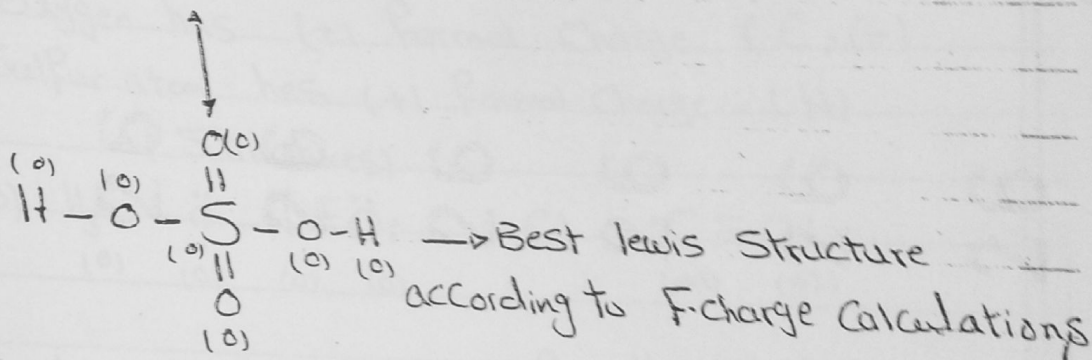 O(0)
(0) (0) ||
H - O - S - O - H → Best lewis Structure
(0) || (0) (0) according to F.charge Calculations
O
(0)